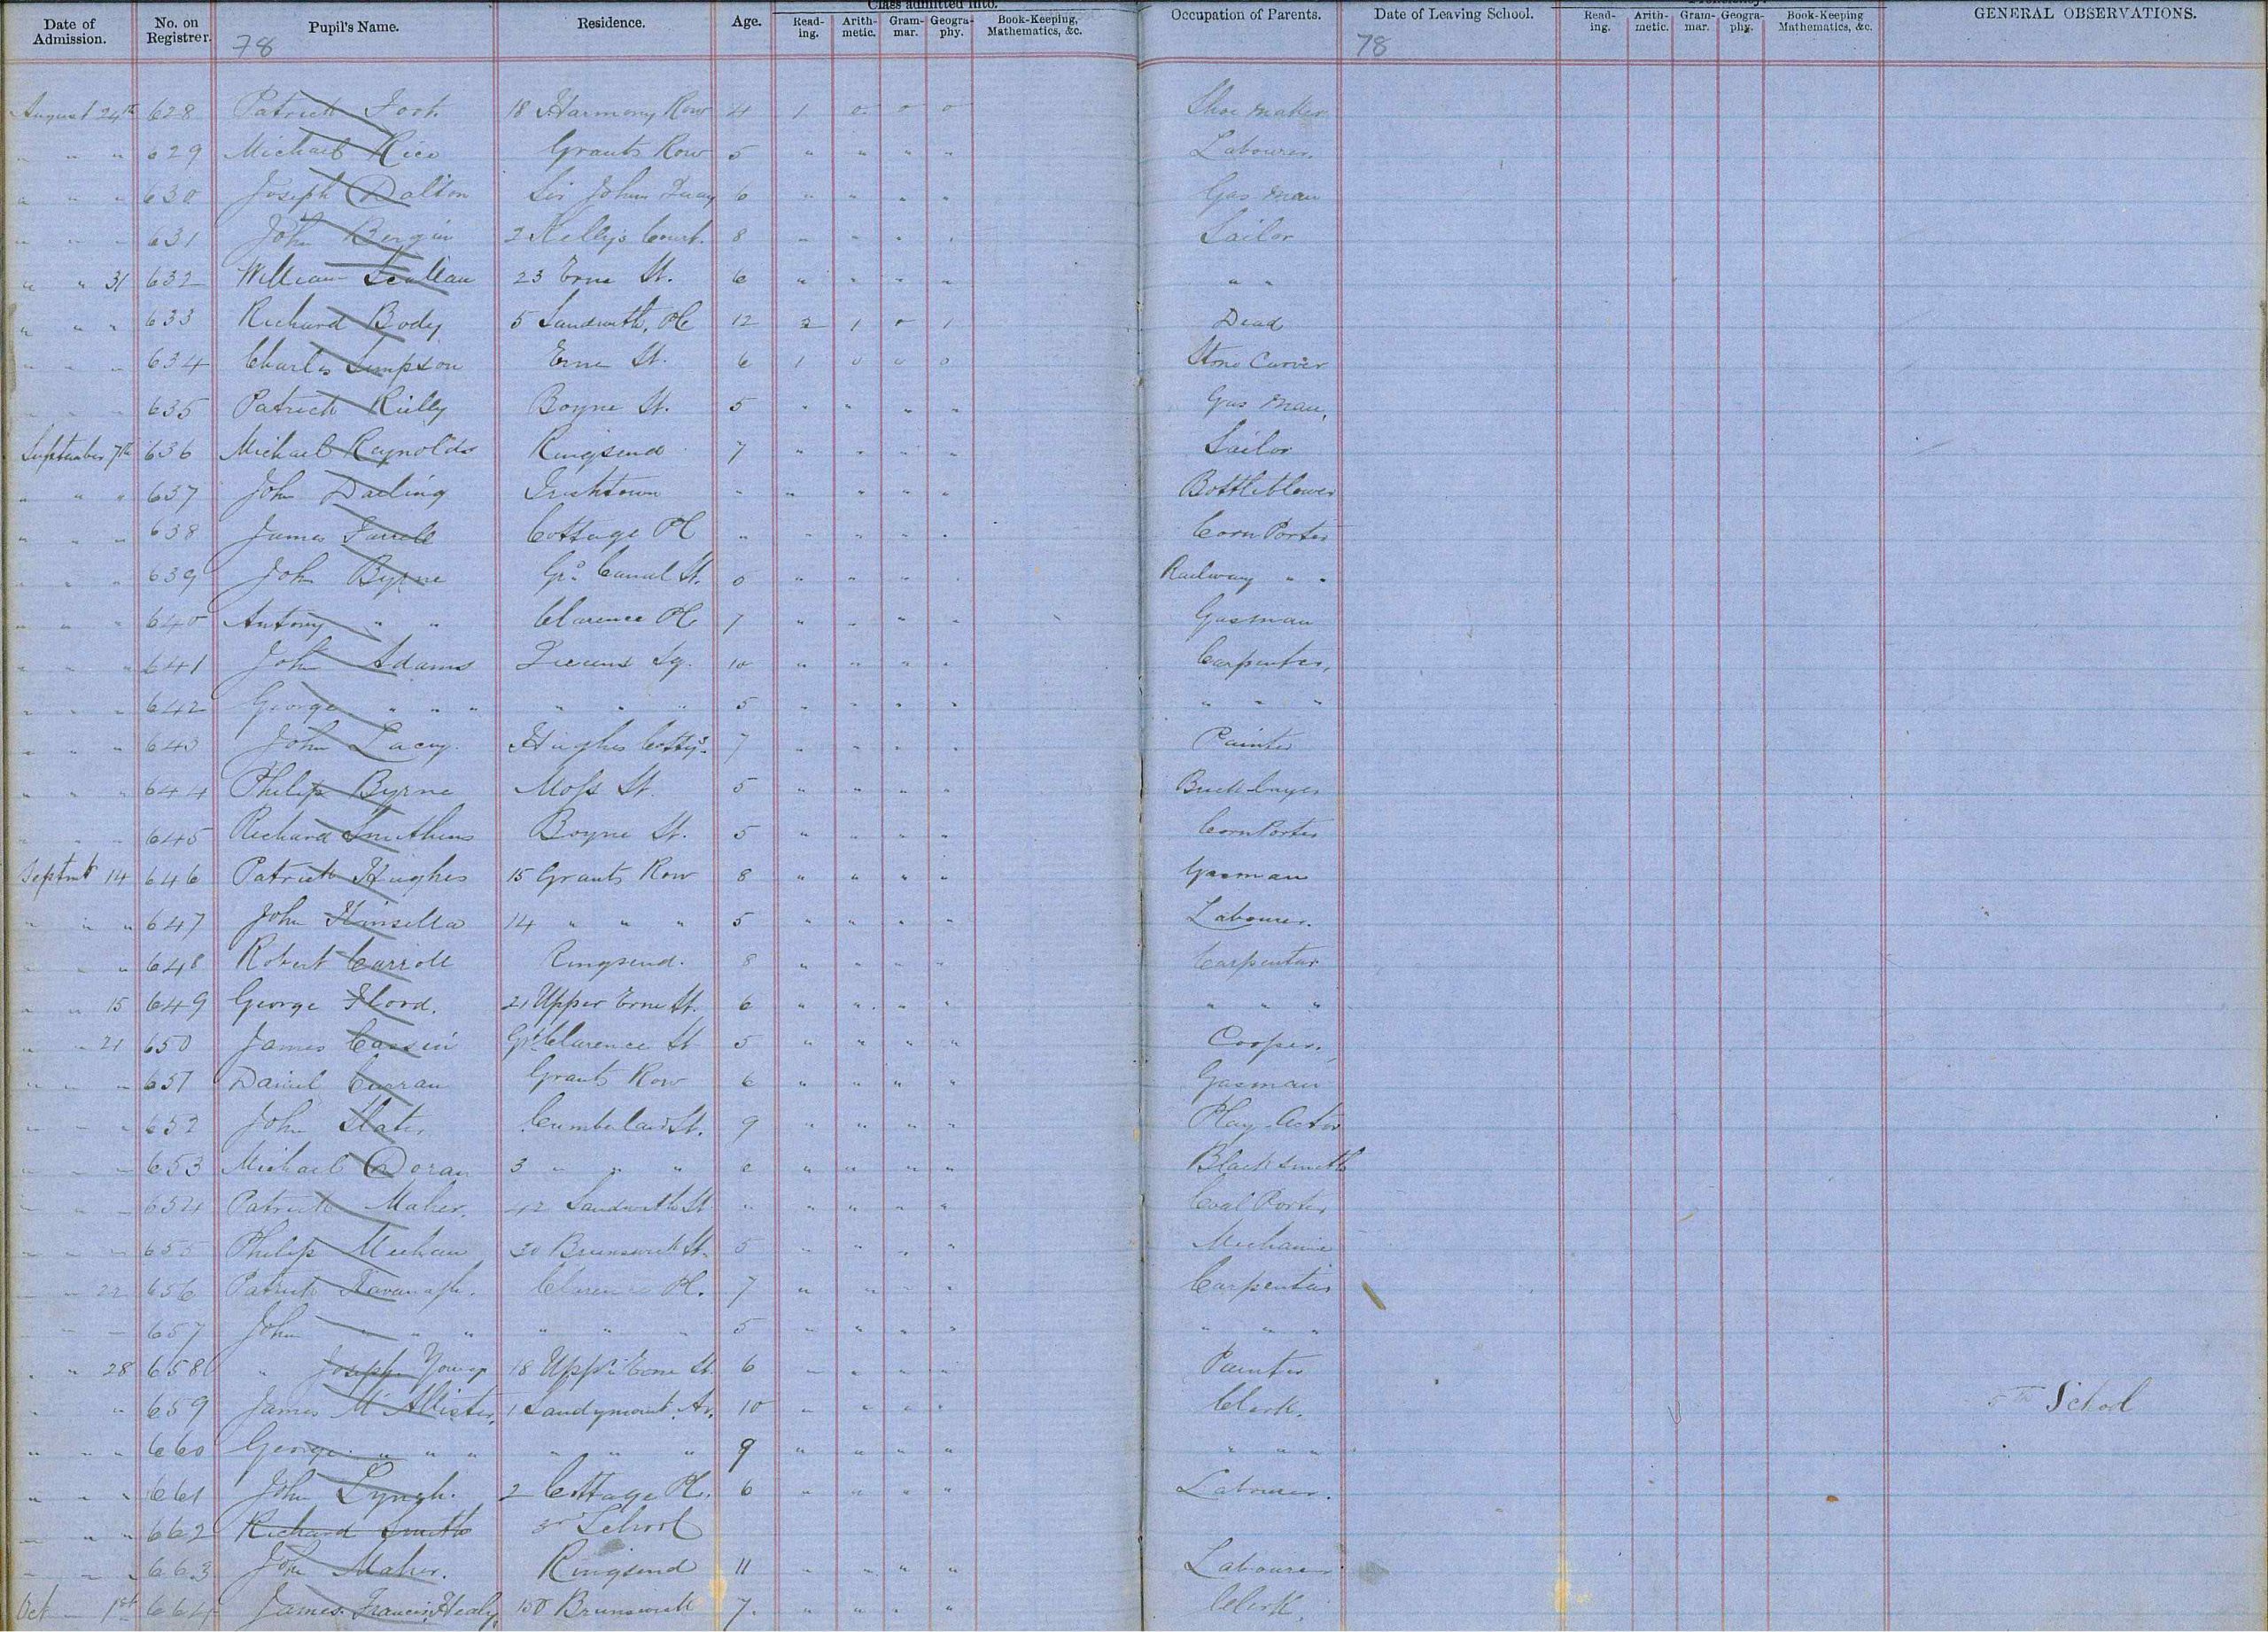 Class admitted into. Proficiency.
Date of Admission. No. on Registrer. Pupil's Name. Residence. Age. Read-ing. Arith-metic. Gram-mar. Geogra-phy. Book-Keeping, Mathematics, &c. Occupation of Parents. Date of Leaving School. Read-ing. Arith-metic. Gram-mar. Geogra-phy. Book-Keeping Mathematics, &c. GENERAL OBSERVATIONS.
78 78
August 24th 628 Patrick Foot. 18 Harmony Row 4 1 0 0 0 Shoe maker
" " " 629 Michael Rice Grants Row 5 " " " " Labourer.
" " " 630 Joseph Dalton Sir Johns Quay 6 " " " " Gas man
" " " 631 John Bergin 2 Kelly's Court. 8 " " " " Sailor
" " 31 632 William Scullan 23 Erne St. 6 " " " " " "
" " " 633 Richard Body 5 Sandwith, Pl 12 2 1 0 1 Dead
" " " 634 Charles Simpson Erne St. 6 1 0 0 0 Stone Carver
" " " 635 Patrick Rielly Boyne St. 5 " " " " Gas Man,
September 7th 636 Michael Reynolds Ringsend 7 " " " " Sailor
" " " 637 John Darling Irishtown " " " " " Bottleblower
" " " 638 James Farrell Cottage Pl " " " " " Corn Porter
" " " 639 John Byrne Grd Canal St. 6 " " " " Railway " "
" " " 640 Antony " " Clarence Pl 7 " " " " Gasman
" " " 641 John Adams Queens Sq. 10 " " " " Carpenter,
" " " 642 George " " " " " " 5 " " " " " " "
" " " 643 John Lacey. Hughes Cottgs. 7 " " " " Painter
" " " 644 Philip Byrne Moss St. 5 " " " " Bricklayer
" " " 645 Richard Smithers Boyne St. 5 " " " " Corn Porter
Septmbr 14 646 Patrick Hughes 15 Grants Row 8 " " " " Gasman
" " " 647 John Kinsella 14 " " " 5 " " " " Labourer.
" " " 648 Robert Carroll Ringsend. 8 " " " " Carpenter
" " 15 649 George Flood. 21 Upper Erne St. 6 " " " " " " "
" " 21 650 James Cassin Grt Clarence St 5 " " " " Cooper.
" " " 651 Daniel Curran Grants Row 6 " " " " Gasman
" " " 652 John Slater Cumberland St. 9 " " " " Play Actor
" " " 653 Michael Doran 3 " " " 6 " " " " Blacksmith
" " " 654 Patrick Maher. 42 Sandwith St " " " " " Coal Porter
" " " 655 Philip Meehan 30 Brunswick St. 5 " " " " Mechanic
" " 22 656 Patrick Kavanagh. Clarence Pl. 7 " " " " Carpenter
" " " 657 John " " " " " " 5 " " " " " " "
" " 28 658 " Joseph Young 18 Uppr Erne St. 6 " " " " Painter
" " 659 James McAllister, 1 Sandymount Av. 10 " " " " Clerk. 5th School
" " " 660 George " " " " " " 9 " " " " " " "
" " " 661 John Lynch. 2 Cottage Pl. 6 " " " " Labourer.
" " " 662 Richard Smith School
" " " 663 John Maher. Ringsend 11 " " " " Labourer
Oct 1st 664 James Francis Healy, 150 Brunswick 7. " " " " Clerk.